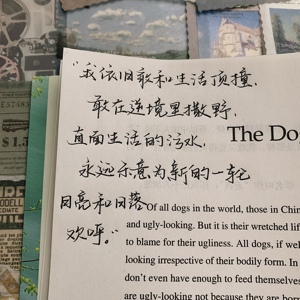 "我依旧敢和生活顶撞,
敢在逆境里撒野,
直面生活的污水,
永远乐意为新的一轮
月亮和日落
欢呼。"
The
Of all dogs in the world, those in
and ugly-looking. But it is their wretched
to blame for their ugliness. All dogs, if
looking irrespective of their bodily form. In
don't even have enough to feed
are ugly-looking not because they are